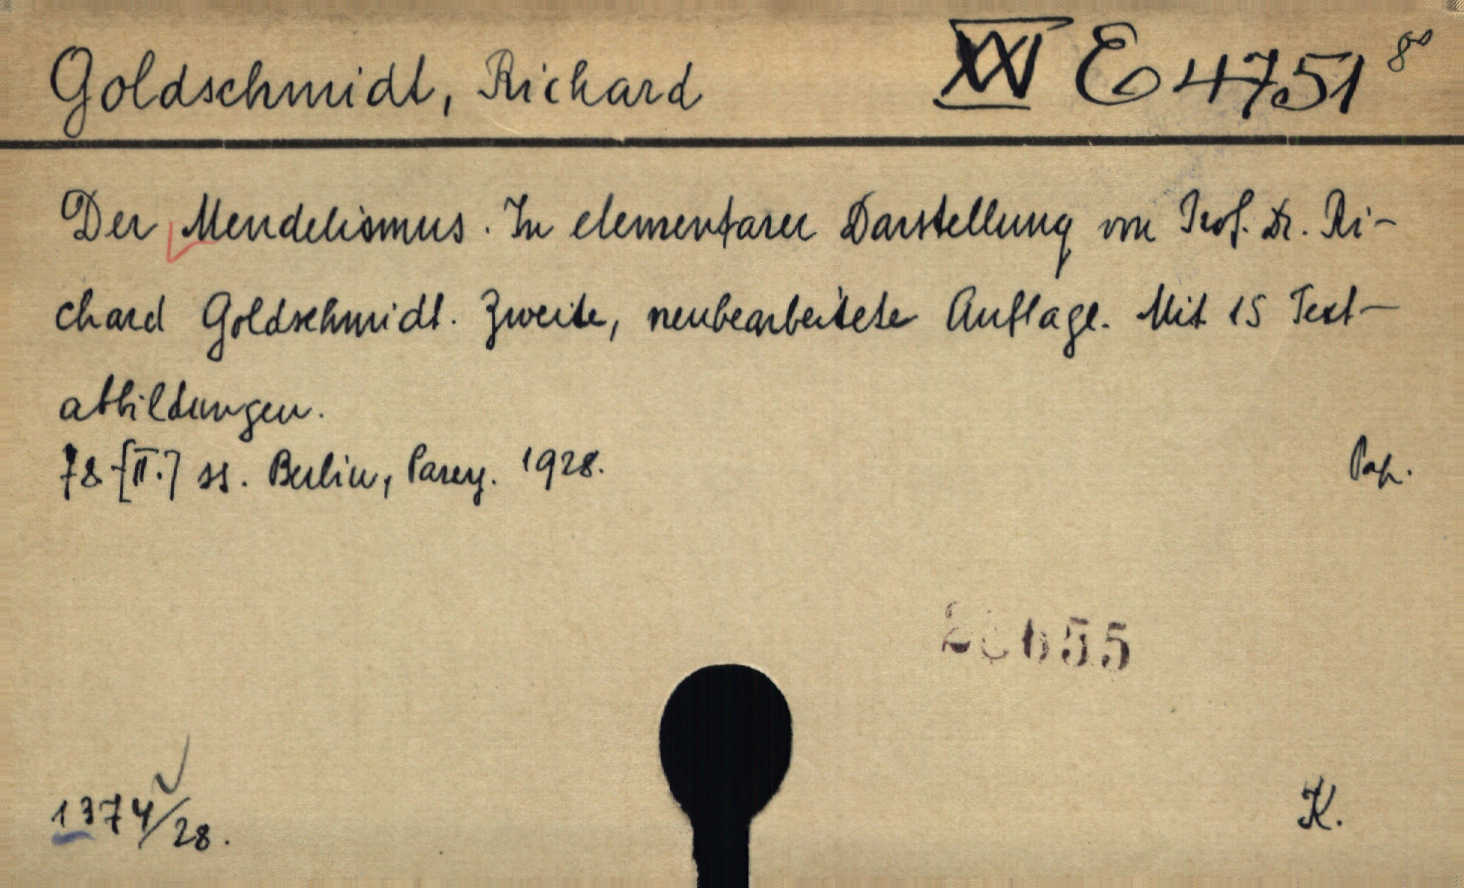 Goldschmidt, Richard XXV E 4751 8°
Der Mendelismus. In elementarer Darstellung von Prof. Dr. Ri-
chard Goldschmidt. Zweite, neubearbeitete Auflage. Mit 15 Text-
abbildungen.
78 [II.] ss. Berlin, Parey. 1928. Pap.
1374/28. K.